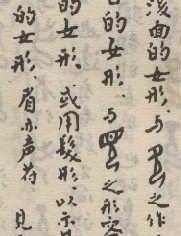 後面的女形,与 之作
的女形,与 之形容
的女形。或用髮形,以示
的女形,省亦声符 見